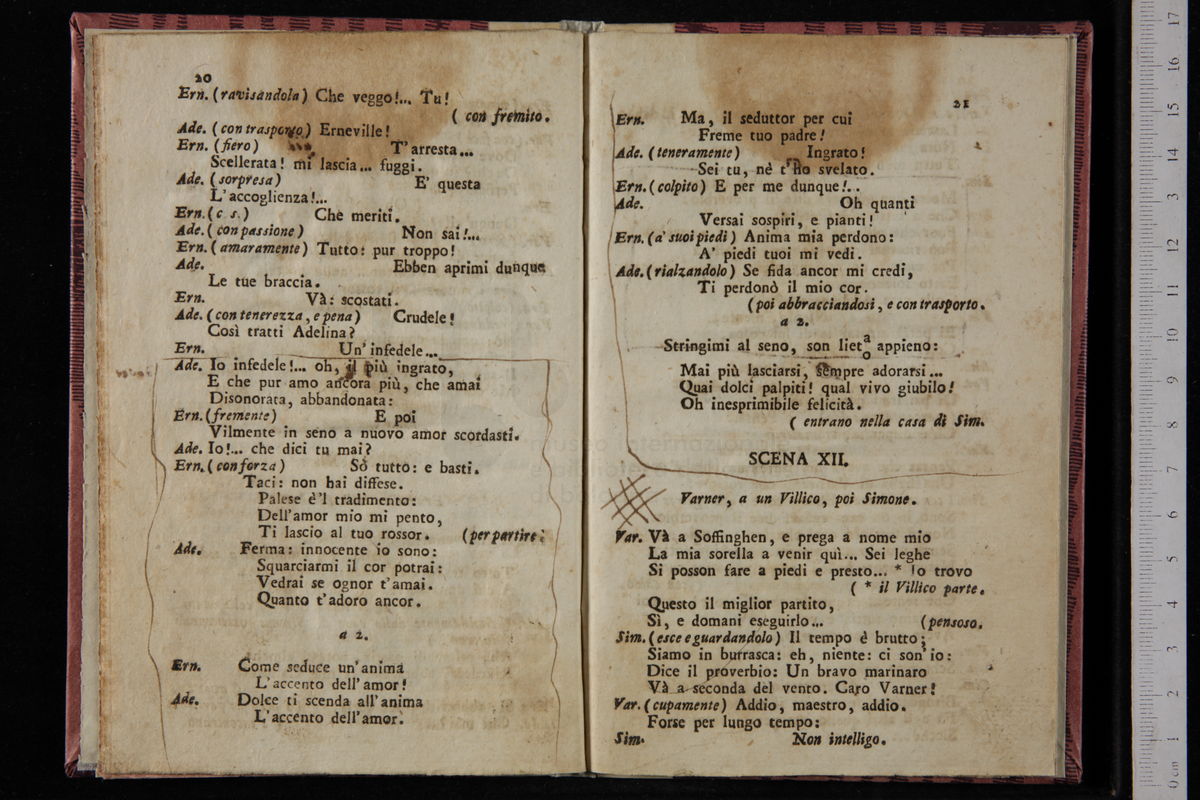 20
Ern. (ravisandola) Che veggo!... Tu!
( con fremito.
Ade. (con trasporto) Erneville!
Ern. (fiero) T' arresta...
Scellerata! mi lascia... fuggi.
Ade. (sorpresa) E' questa
L' accoglienza!...
Ern. (c s.) Chè meriti.
Ade. (con passione) Non sai!...
Ern. (amaramente) Tutto: pur troppo!
Ade. Ebben aprimi dunque
Le tue braccia.
Ern. Và: scostati.
Ade. (con tenerezza, e pena) Crudele!
Così tratti Adelina?
Ern. Un' infedele...
Ade. Io infedele!... oh, il più ingrato,
E che pur amo ancora più, che amai
Disonorata, abbandonata:
Ern. (fremente) E poi
Vilmente in seno a nuovo amor scordasti.
Ade. Io!... che dici tu mai?
Ern. (con forza) Sò tutto: e basti.
Taci: non hai diffese.
Palese è'l tradimento:
Dell' amor mio mi pento,
Ti lascio al tuo rossor. (per partire:
Ade. Ferma: innocente io sono:
Squarciarmi il cor potrai:
Vedrai se ognor t' amai.
Quanto t' adoro ancor.
a 2.
Ern. Come seduce un' anima
L' accento dell' amor!
Ade. Dolce ti scenda all' anima
L' accento dell' amor.
21
Ern. Ma, il seduttor per cui
Freme tuo padre!
Ade. (teneramente) Ingrato!
Sei tu, nè t' ho svelato.
Ern. (colpito) E per me dunque!..
Ade. Oh quanti
Versai sospiri, e pianti!
Ern. (a' suoi piedi) Anima mia perdono:
A' piedi tuoi mi vedi.
Ade. (rialzandolo) Se fida ancor mi credi,
Ti perdonò il mio cor.
(poi abbracciandosi, e con trasporto.
a 2.
Stringimi al seno, son lieta/o appieno:
Mai più lasciarsi, sempre adorarsi...
Quai dolci palpiti! qual vivo giubilo!
Oh inesprimibile felicità.
( entrano nella casa di Sim.
SCENA XII.
Varner, a un Villico, poi Simone.
Var. Và a Soffinghen, e prega a nome mio
La mia sorella a venir quì... Sei leghe
Si posson fare a piedi e presto... * Io trovo
( * il Villico parte.
Questo il miglior partito,
Sì, e domani eseguirlo... (pensoso.
Sim. (esce e guardandolo) Il tempo è brutto;
Siamo in burrasca: eh, niente: ci son' io:
Dice il proverbio: Un bravo marinaro
Và a seconda del vento. Caro Varner!
Var. (cupamente) Addio, maestro, addio.
Forse per lungo tempo:
Sim. Non intelligo.